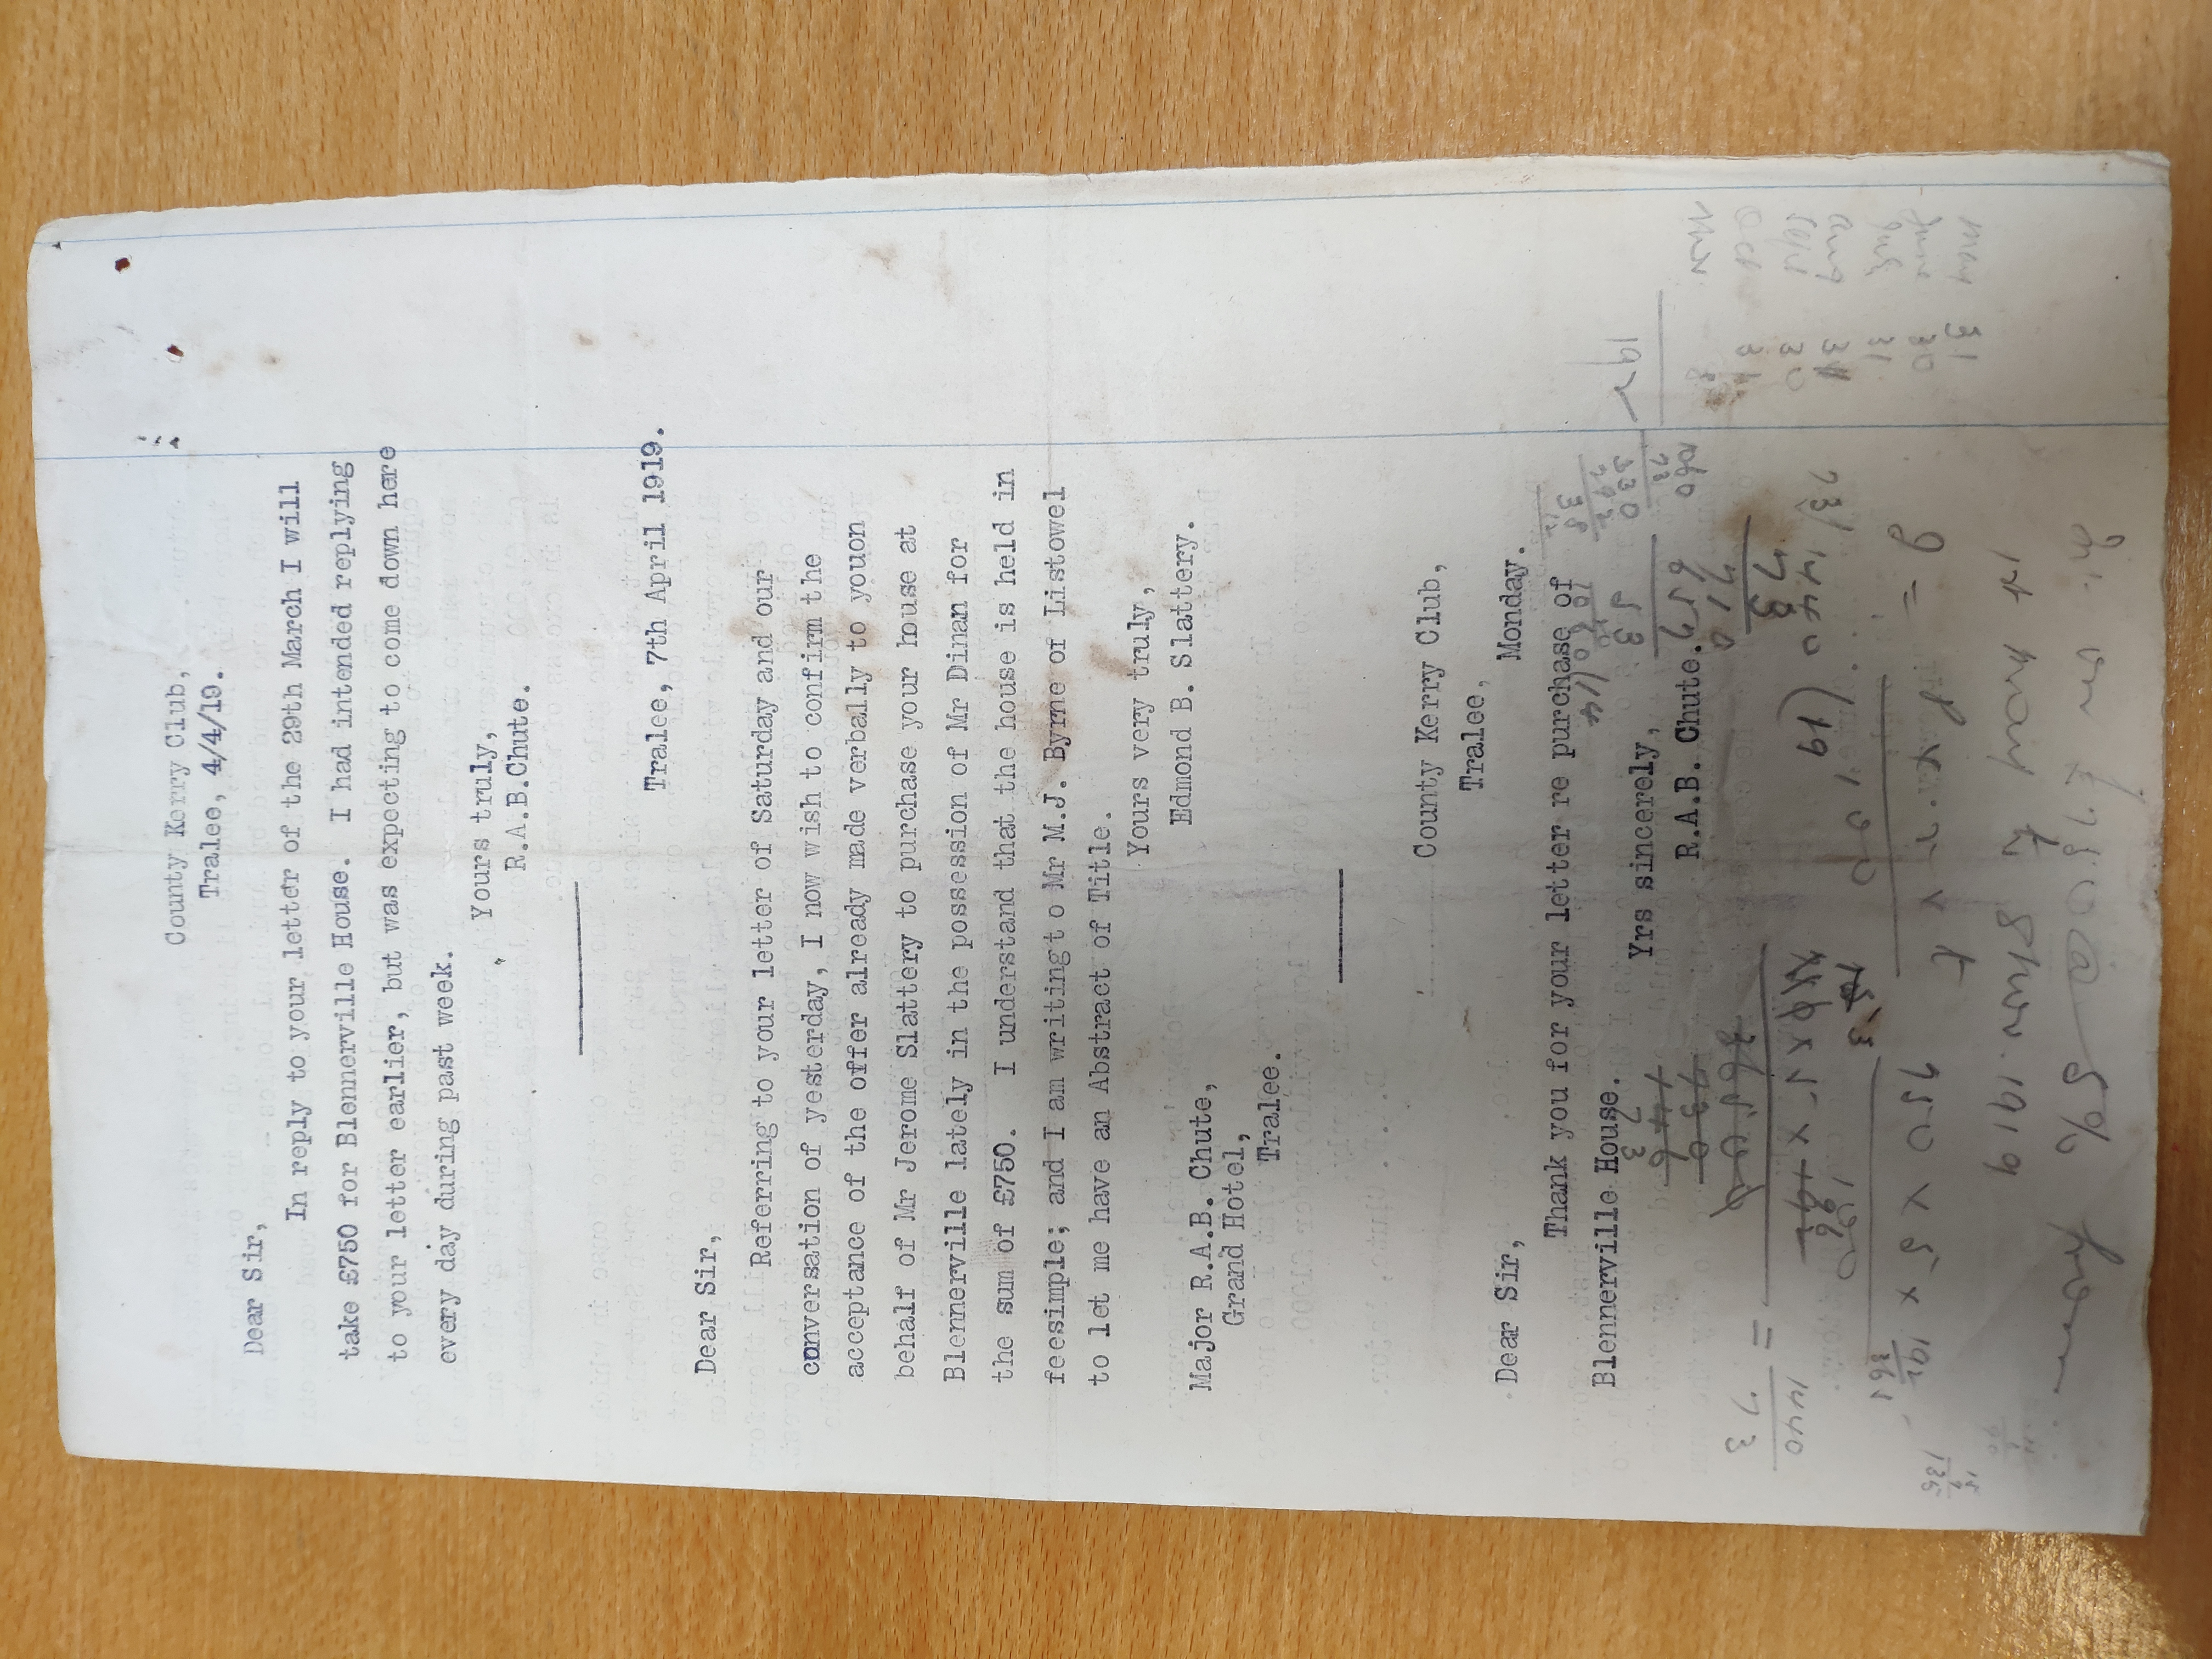 County Kerry Club,
Tralee, 4/4/19.
Dear Sir,
In reply to your letter of the 29th March I will
take £750 for Blennerville House. I had intended replying
to your letter earlier, but was expecting to come down here
every day during past week.
Yours truly,
R.A.B.Chute.
Tralee, 7th April 1919.
Dear Sir,
Referring to your letter of Saturday and our
conversation of yesterday, I now wish to confirm the
acceptance of the offer already made verbally to youon
behalf of Mr Jerome Slattery to purchase your house at
Blennerville lately in the possession of Mr Dinan for
the sum of £750. I understand that the house is held in
feesimple; and I am writingt o Mr M.J. Byrne of Listowel
to let me have an Abstract of Title.
Yours very truly,
Edmond B. Slattery.
Major R.A.B. Chute,
Grand Hotel,
Tralee.
County Kerry Club,
Tralee,
Monday.
Dear Sir,
Thank you for your letter re purchase of
Blennerville House.
Yrs sincerely,
R.A.B. Chute.
May 31
June 30
July 31
Aug 31
Sept 30
Oct
Nov
192
73/1440(19
1440
73
750 x 5 x 192
365
£750 @ 5%
from
14 May to 8 Nov. 1919